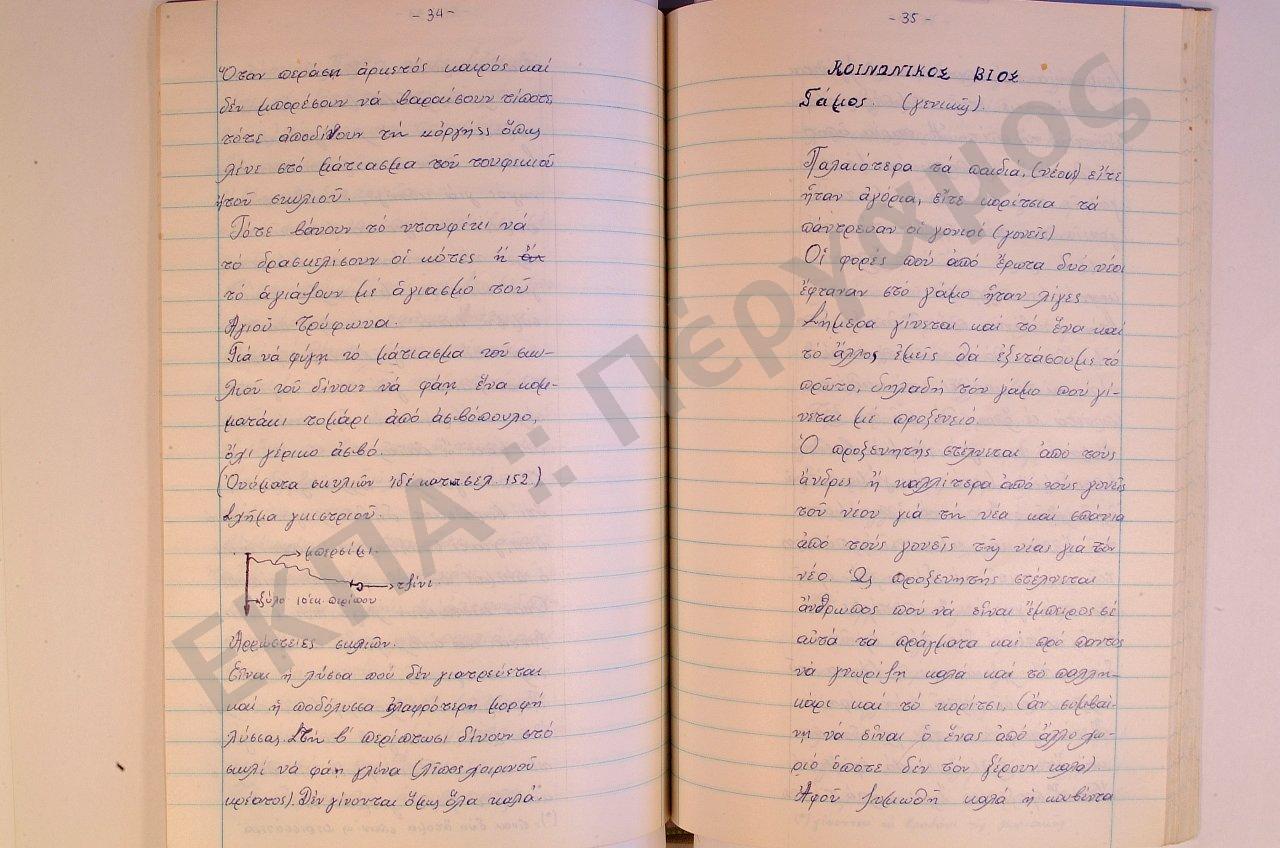 - 34 -
Ὅταν περάση ἀρκετός καιρός καί
δέν μπορέσουν νά βαραίσουν τίποτε,
τότε ἀποδίνουν τή κάργης ὅπως
λένε στό μάτιασμα τοῦ τουφεκιοῦ
ἤ τοῦ σκυλιοῦ.
Τότε βάνουν τό ντουφέκι νά
τό δρασκελίσουν οἱ κότες ἤ
τό ἁγιάζουν μέ ἁγιασμό τοῦ
Ἁγιοῦ Τρύφωνα.
Γιά νά φύγη τό μάτιασμα τοῦ σκυ-
λιοῦ τοῦ δίνουν νά φάη ἕνα κομ-
ματάκι τομάρι ἀπό ἀσβόπουλο,
ὄχι γέρικο ἀσβό.
(Ὀνόματα σκυλιῶν ἰδέ κατ. σελ. 152)
Σχῆμα γκιστριοῦ.
μπερσίμι.
ξύλο 10 εκ. περίπου
Ἀρρώστειες σκυλιῶν.
Εἶναι ἡ λύσσα πού δέν γιατρεύεται
καί ἡ ποδόλυσσα ἐλαφρότερη μορφή
λύσσας. Στή β' περίπτωσι δίνουν στό
σκυλί νά φάη γλίνα (λῖπος χοιρινοῦ
κρέατος). Δέν γίνονται ὅμως ὅλα καλά.
- 35 -
ΚΟΙΝΩΝΙΚΟΣ ΒΙΟΣ
Γάμος. (γενικῶς).
Παλαιότερα τά παιδιά, (νέους) εἴτε
ἦταν ἀγόρια, εἴτε κορίτσια τά
πάντρευαν οἱ γονιοί (γονεῖς)
Οἱ φορές πού ἀπό ἔρωτα δυό νέοι
ἔφταναν στό γάμο ἦταν λίγες
Σήμερα γίνεται καί τό ἕνα καί
τό ἄλλος ἐμεῖς θά ἐξετάσουμε τό
πρῶτο, δηλαδή τόν γάμο πού γί-
νεται μέ προξενειό.
Ὁ προξενητής στέλνεται ἀπό τούς
ἄνδρες ἤ καλλίτερα ἀπό τούς γονεῖς
τοῦ νέου γιά τή νέα καί σπάνια
ἀπό τούς γονεῖς τῆς νέας γιά τόν
νέο. Ὡς προξενητής στέλνεται
ἄνθρωπος πού νά εἶναι ἔμπειρος σέ
αὐτά τά πράγματα καί πρό παντός
νά γνωρίζη καλά καί τό παλλη-
κάρι καί τό κορίτσι, (ἄν συμβαί-
νη νά εἶναι ὁ ἕνας ἀπό ἄλλο χω-
ριό ὁπότε δέν τόν ξέρουν καλά).
Ἀφοῦ ζυμωθῆ καλά ἡ κουβέντα
ΕΚΠΑ :: Πέργαμος